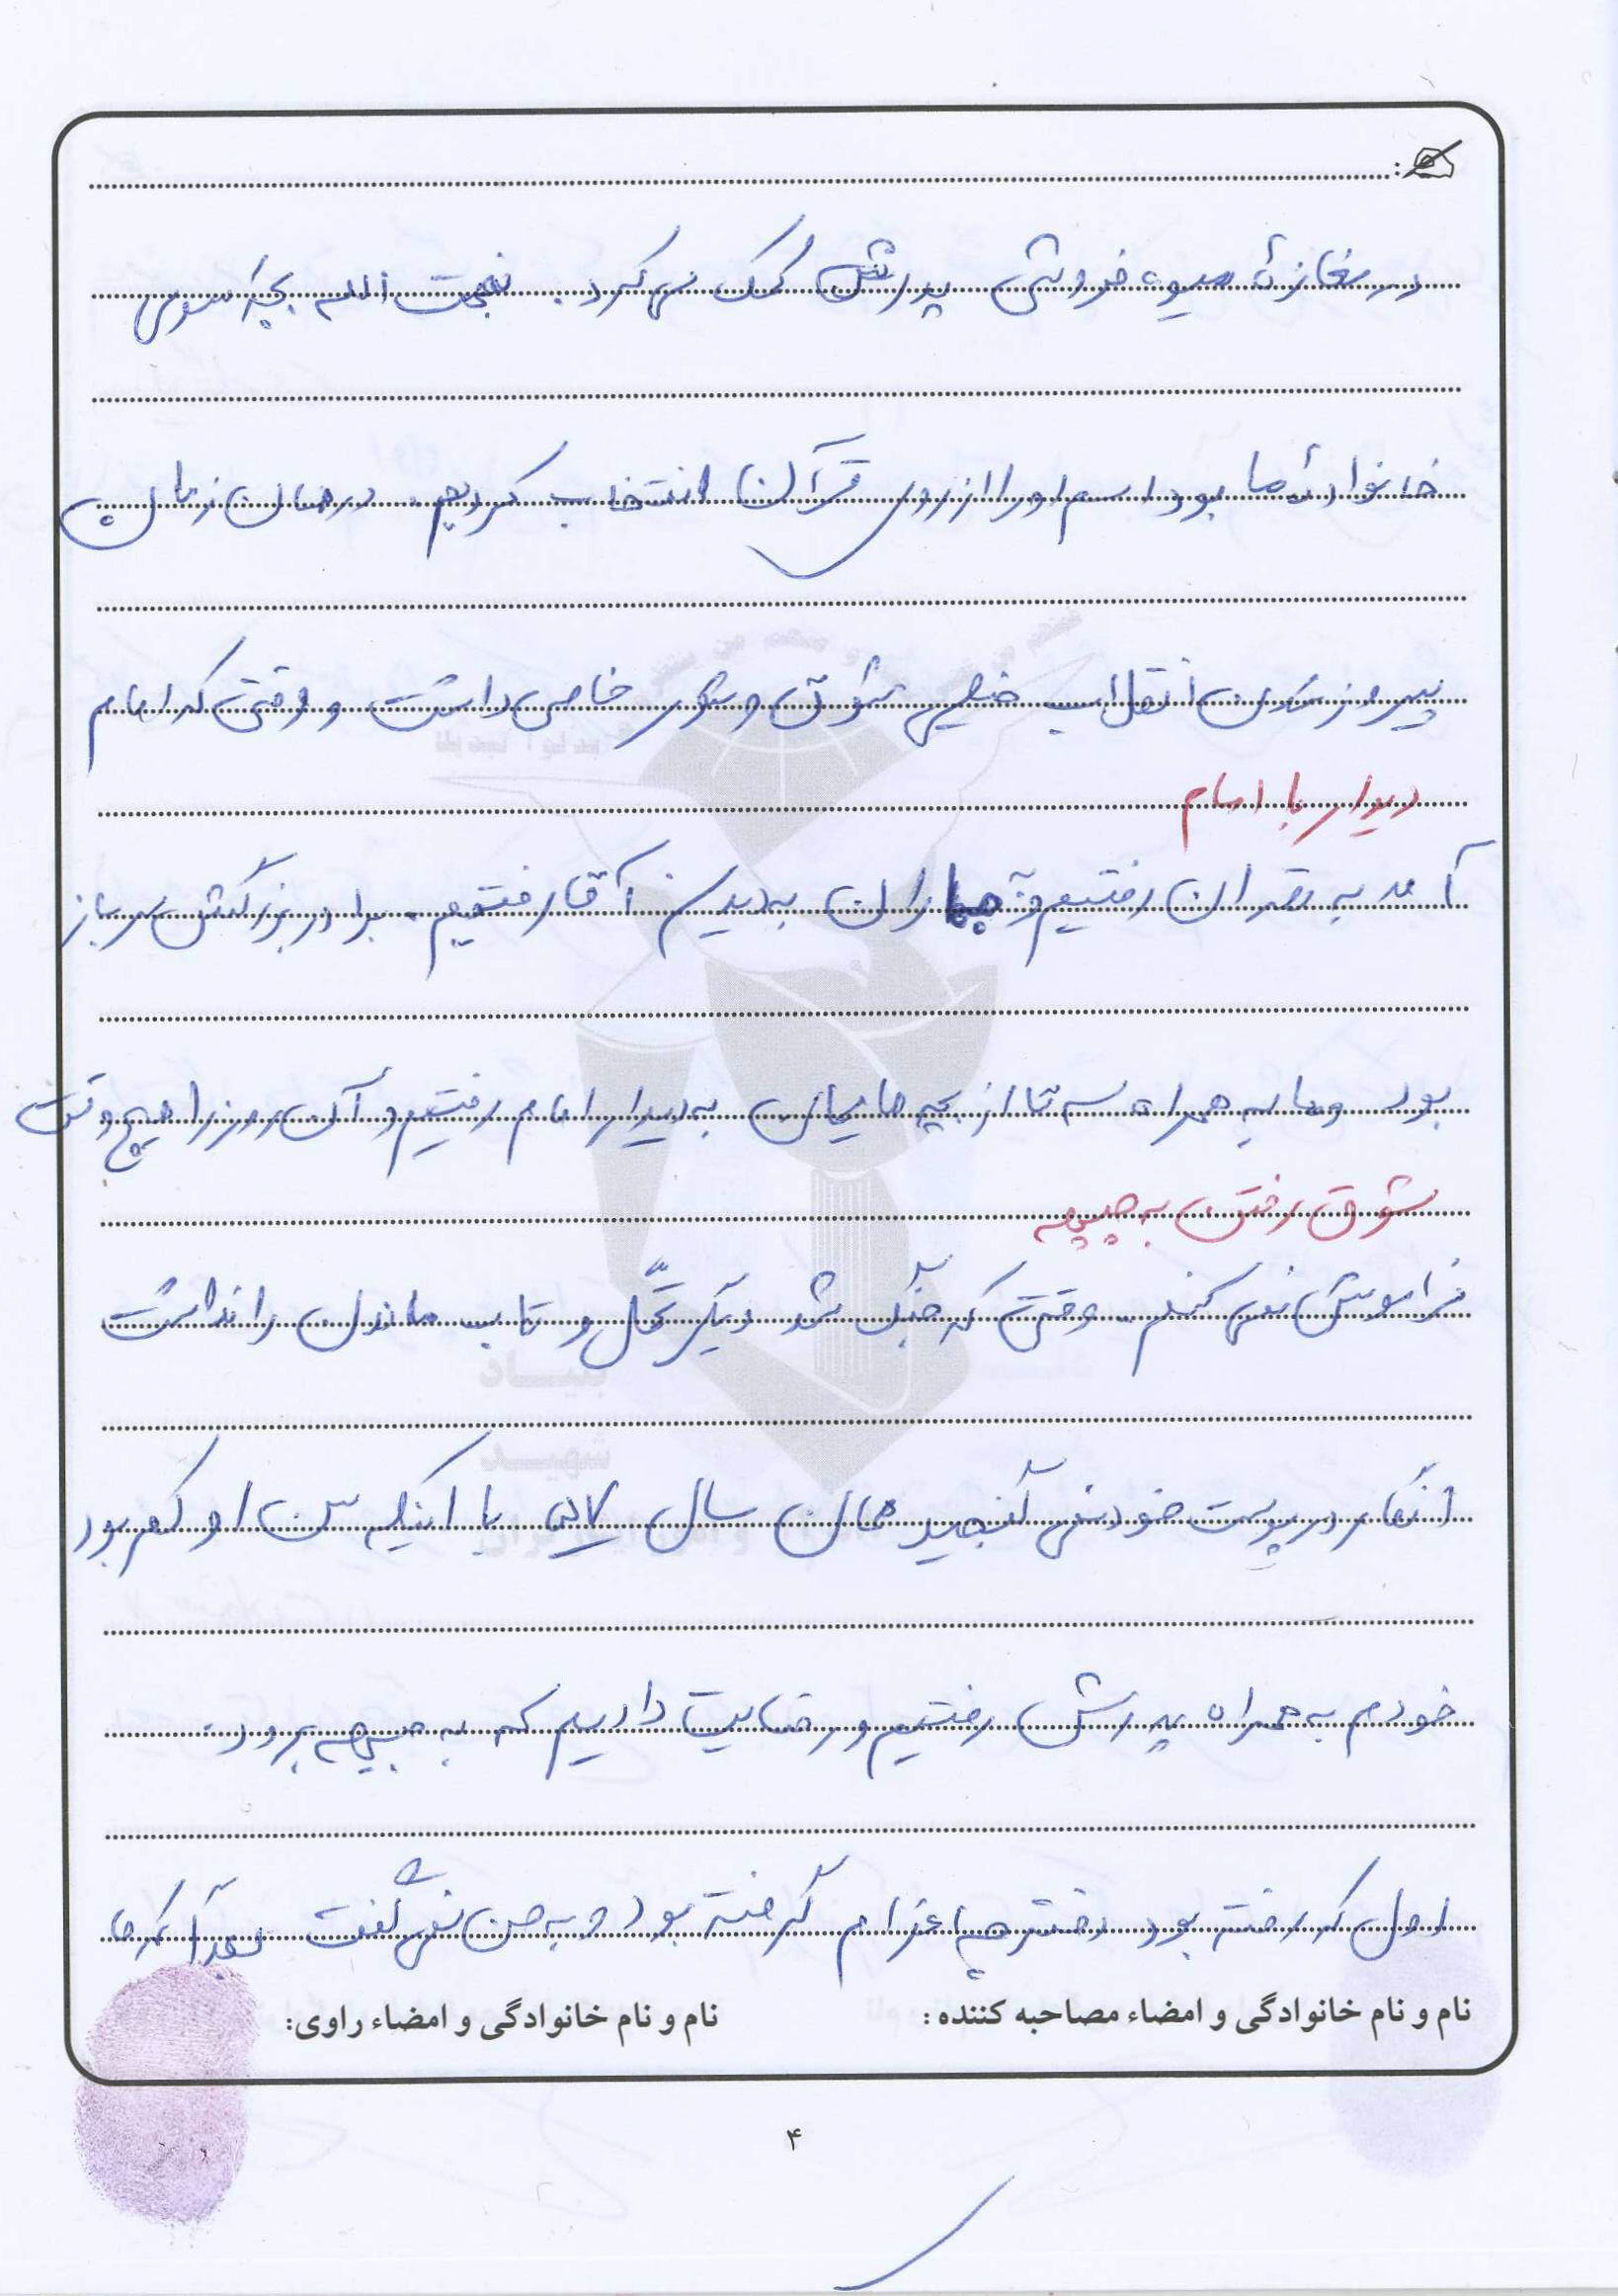 در مغازهٔ میوه فروشی پدرش کمک می‌کرد. نعمت الله بچهٔ سوم
خانوادهٔ ما بود اسم او را از روی قرآن انتخاب کردیم. در همان زمان
پیروز شدن انقلاب خیلی شوق و شور خاصی داشت و وقتی که امام
دیدار با امام
آمد به تهران رفتیم و جماران به دیدن آقا رفتیم. برادر بزرگش سرباز
بود و ما به همراه سه تا از بچه هایمان به دیدار امام رفتیم و آن روز را هیچ وقت
شوق رفتن به جبهه
فراموش نمی کنم. وقتی که جنگ شد دیگر تحمّل و تاب ماندن را نداشت
انگار در پوست خود نمی گنجید همان سال با اینکه سن او کم بود
خودم به همراه پدرش رفتیم و رضایت دادیم که به جبهه برود.
اول که رفته بود دفترچه اعزام گرفته بود و به من نمی گفت بعداً که ما
نام و نام خانوادگی و امضاء مصاحبه کننده: نام و نام خانوادگی و امضاء راوی:
۴